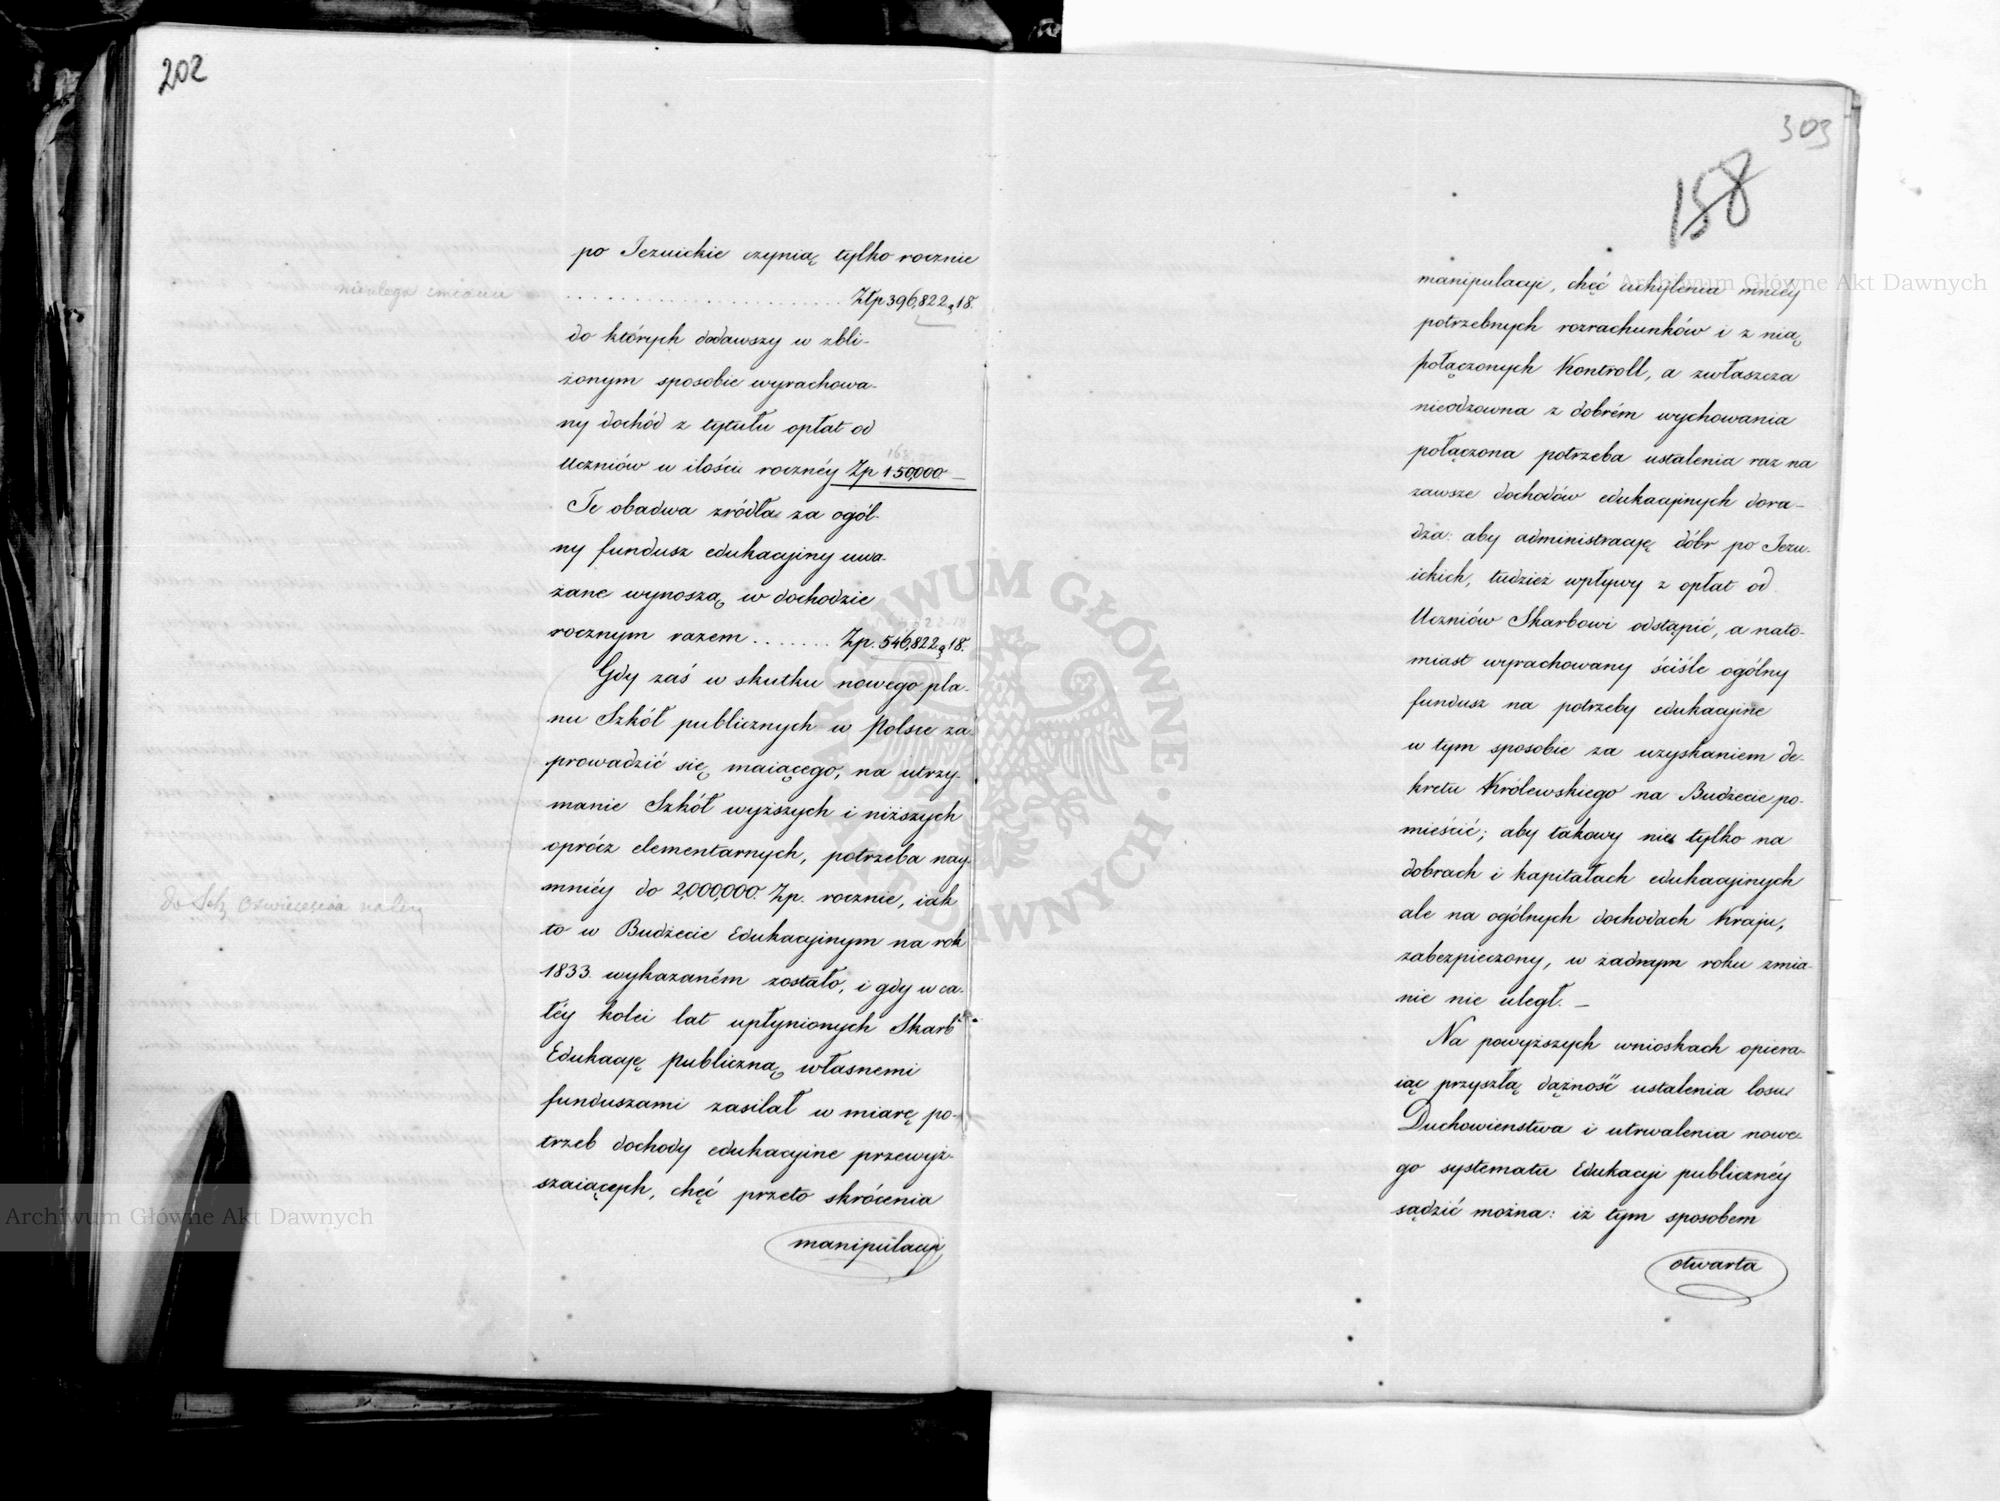 202
po Jezuickie czynią tylko rocznie
nieulega zmianie
. . . . . . . . . . . . . . . . . . . . . Złp 396,822 g 18.
do których dodawszy w zbli-
żonym sposobie wyrachowa-
ny dochód z tytułu opłat od
Uczniów w ilości rocznéy Zp 150,000 —
Te obadwa zródła za ogól-
ny fundusz edukacyiny uwa-
żane wynoszą w dochodzie
rocznym razem . . . . . . . Zp. 546,822 g 18.
Gdy zaś w skutku nowego pla-
nu Szkół publicznych w Polsce za-
prowadzić się maiącego, na utrzy-
manie Szkół wyższych i niższych
oprócz elementarnych, potrzeba nay-
mniéy do 2,000,000. Zp. rocznie, iak
to w Budżecie Edukacyinym na rok
1833. wykazaném zostało, i gdy w ca-
łéy kolei lat upłynionych Skarb
Edukacyę Publiczną własnemi
funduszami zasilał w miarę po-
trzeb dochody edukacyine przewyż-
szaiących, chęć przeto skrócenia
manipulacyi
303
158
manipulacyi, chęć uchylenia mniéy
potrzebnych rozrachunków i z nią
połączonych Kontroll, a zwłaszcza
nieodzowna z dobrém wychowania
połączona potrzeba ustalenia raz na
zawsze dochodów edukacyinych dora-
dza: aby administracyę dóbr po Jezu-
ickich, tudzież wpływy z opłat od
Uczniów Skarbowi odstąpić, a nato-
miast wyrachowany ściśle ogólny
fundusz na potrzeby edukacyine
w tym sposobie za uzyskaniem de-
kretu Królewskiego na Budżecie po-
mieścić; aby takowy nie tylko na
dobrach i kapitałach edukacyinych
ale na ogólnych dochodach Kraju,
zabezpieczony, w żadnym roku zmia-
nie nie uległ. —
Na powyższych wnioskach opiera-
iąc przyszłą dążność ustalenia losu
Duchowieństwa i utrwalenia nowe-
go systematu Edukacyi publicznéy
sądzić można: iż tym sposobem
otwarta
Archiwum Główne Akt Dawnych
Archiwum Główne Akt Dawnych
ARCHIWUM GŁÓWNE AKT DAWNYCH